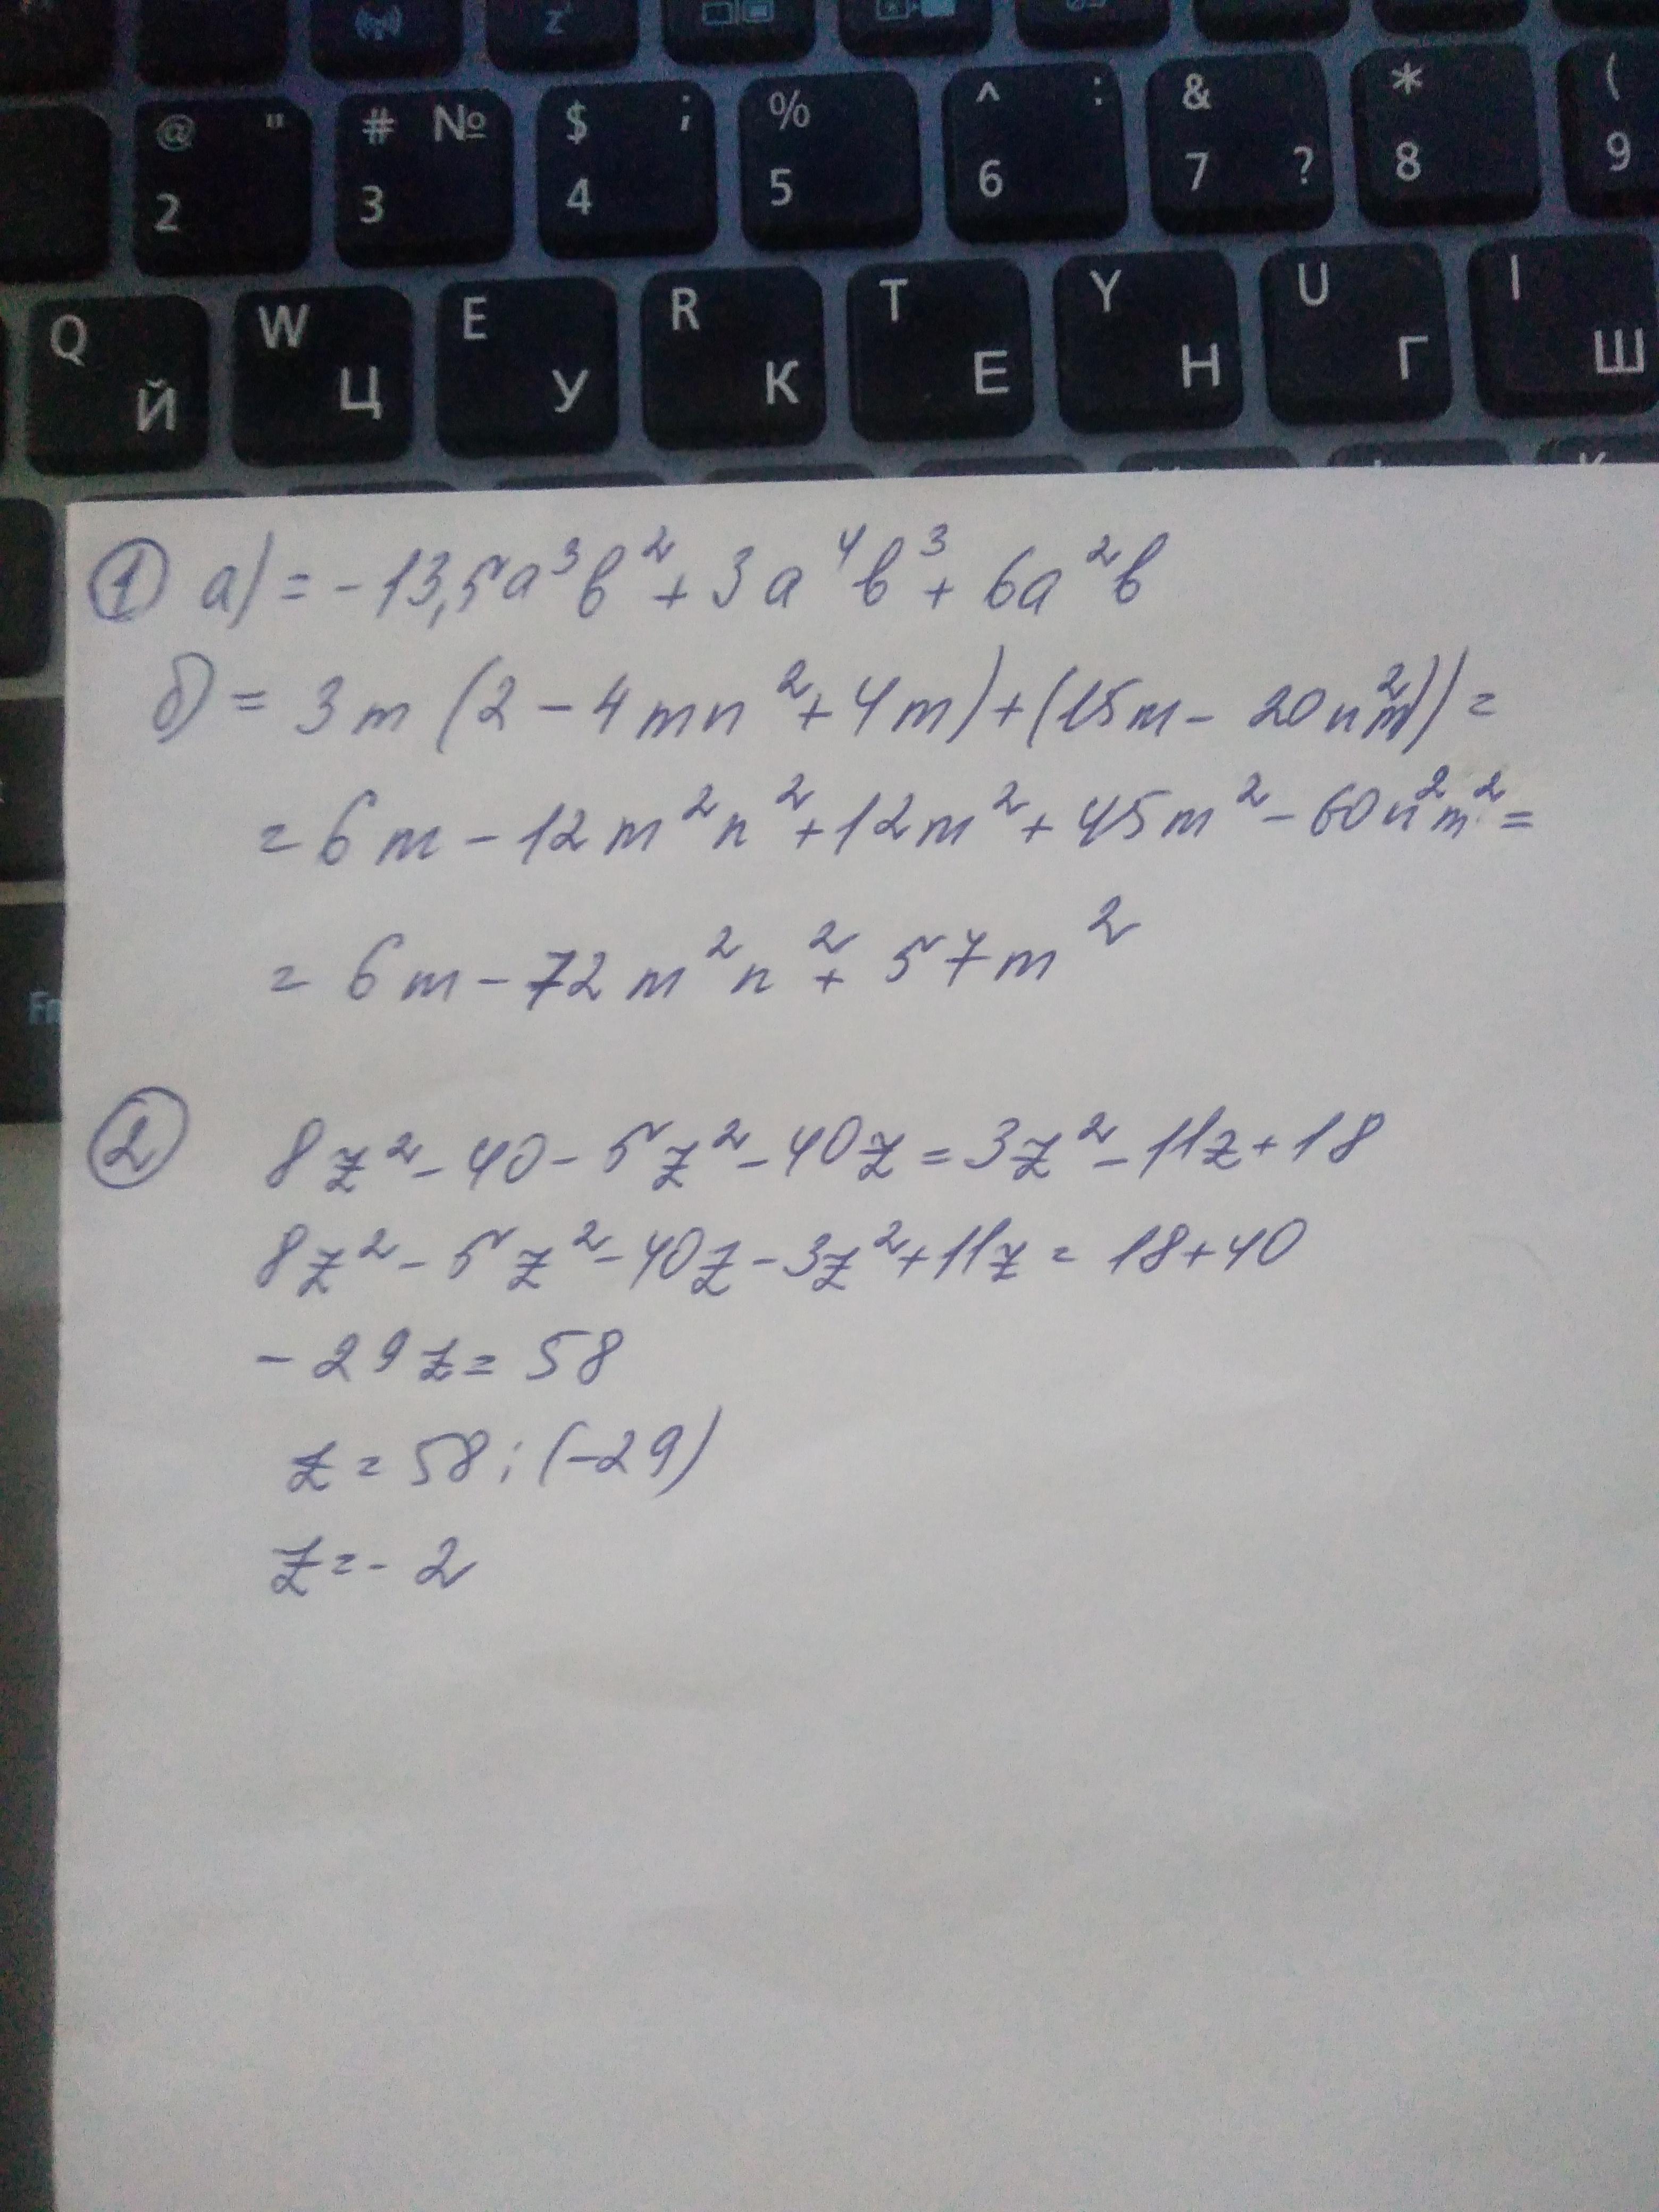 z
@ " # № $ ; % ^ : & * (
2 3 4 5 6 7 ? 8 9
Q W E R T Y U I
Й Ц У К Е Н Г Ш
Fn
① а) = - 13,5a³b² + 3a⁴b³ + 6a²b
б) = 3m (2 - 4mn² + 4m) + (15m - 20n²m)) =
= 6m - 12m²n² + 12m² + 45m² - 60n²m² =
= 6m - 72m²n² + 57m²
② 8z² - 40 - 5z² - 40z = 3z² - 11z + 18
8z² - 5z² - 40z - 3z² + 11z = 18 + 40
- 29z = 58
z = 58 : (-29)
z = - 2